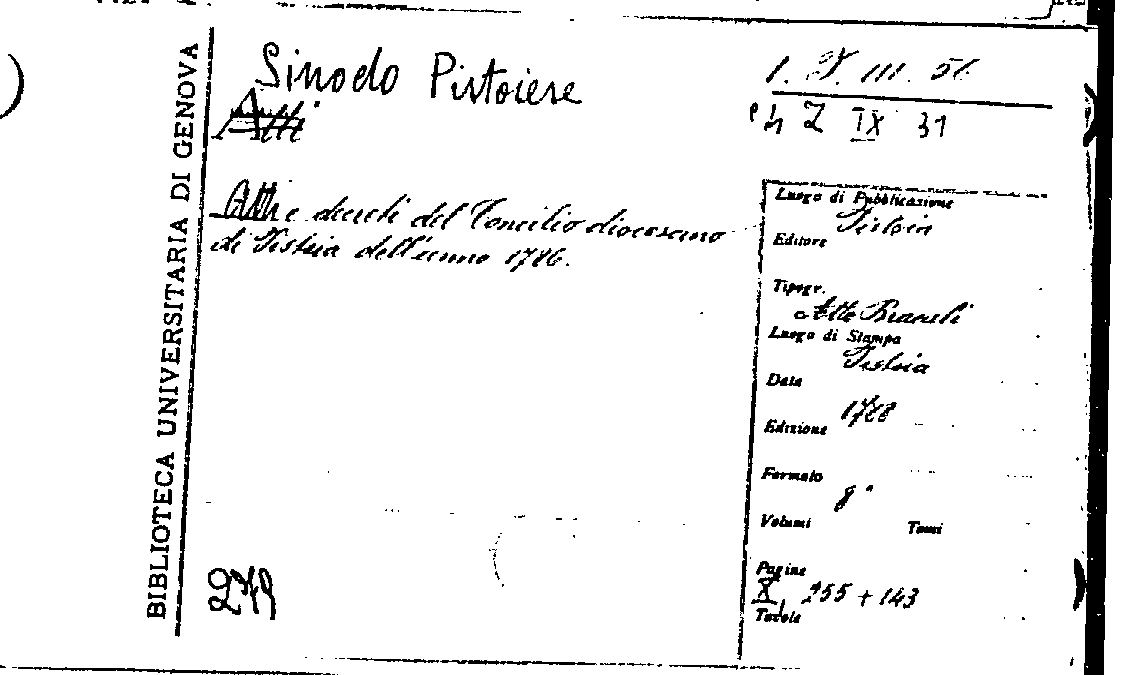 BIBLIOTECA UNIVERSITARIA DI GENOVA
Sinodo Pistoiese
Atti
Atti e decreti del Concilio diocesano
di Pistoia dell'anno 1786.
Z IX 31
Luogo di Pubblicazione
Pistoia
Editore
Tipogr.
Atto Bracali
Luogo di Stampa
Pistoia
Data
1788
Edizione
Formato
8°
Volumi Tomi
Pagine
X, 255 + 143
Tavole
279